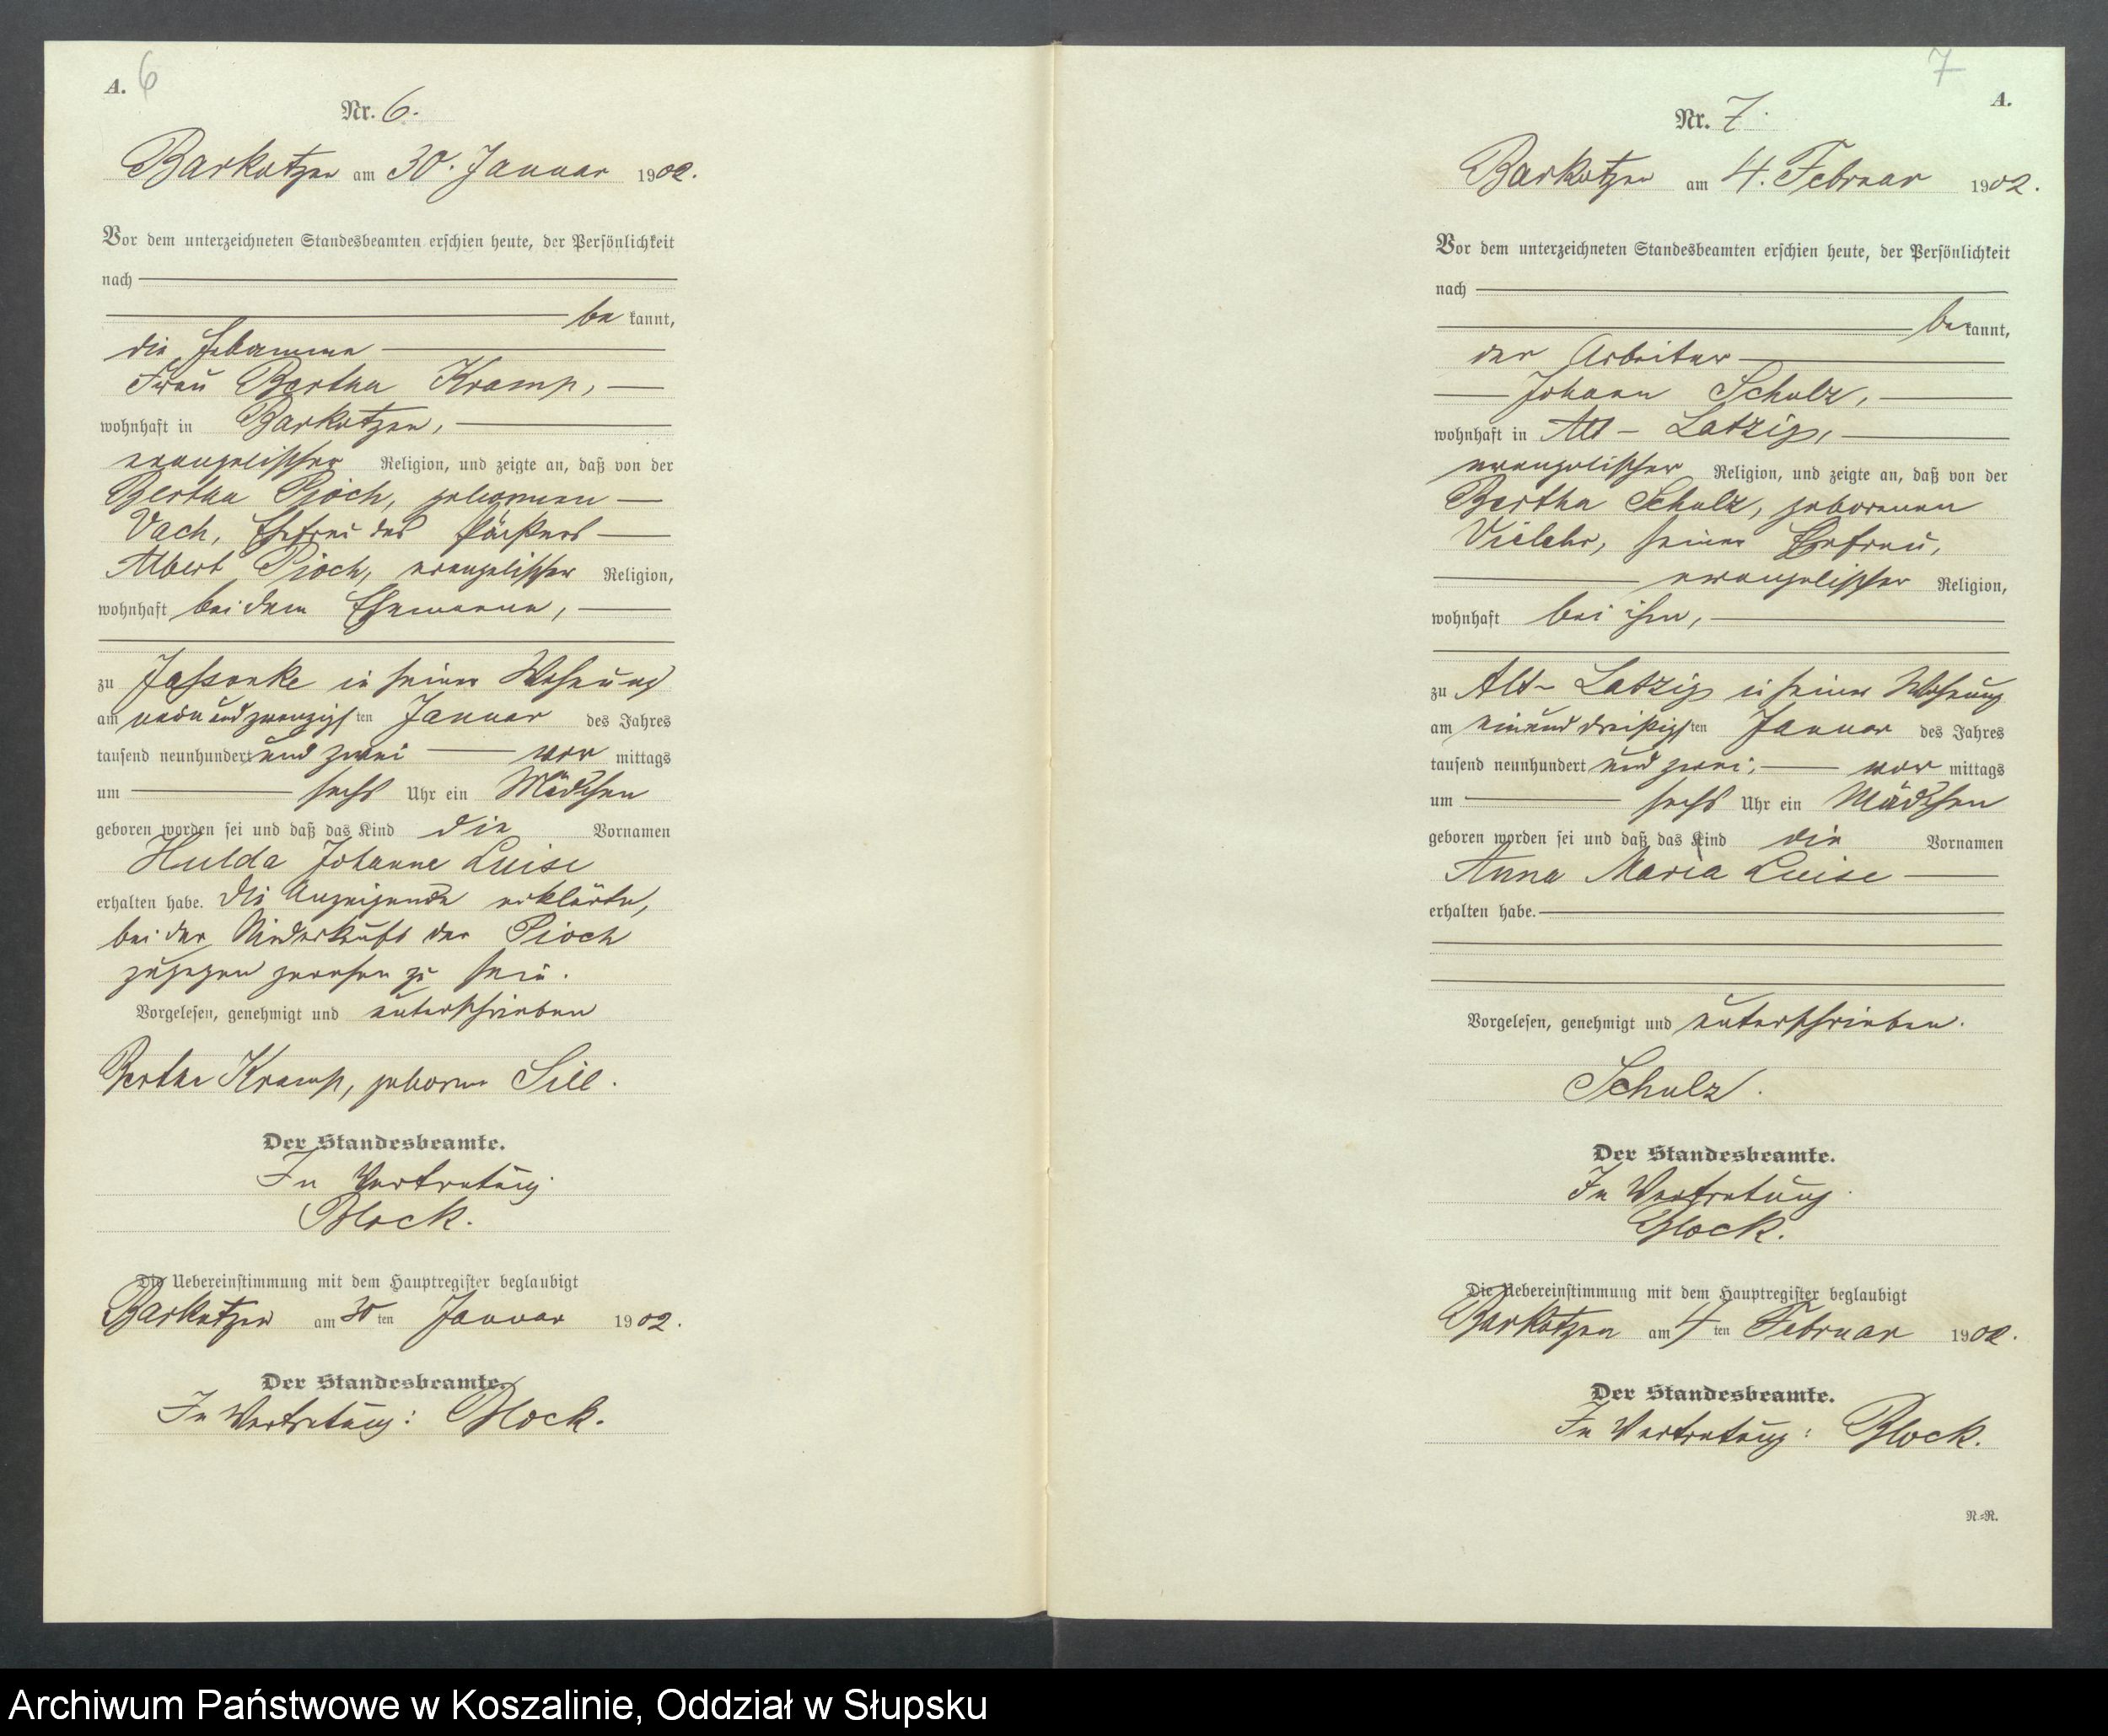 A. 6
Nr. 6.
Barkotzen am 30. Januar 1902.
Vor dem unterzeichneten Standesbeamten erschien heute, der Persönlichkeit
nach
be kannt,
die Hebamme
Frau Bertha Kramp,
wohnhaft in Barkotzen,
evangelischer Religion, und zeigte an, daß von der
Bertha Pioch, geborenen
Vach, Ehefrau des Pächters
Albert Pioch, evangelischer Religion,
wohnhaft bei dem Ehemanne,
zu Jassonke in seiner Wohnung
am neunundzwanzigsten Januar des Jahres
tausend neunhundert und zwei vor mittags
um sechs Uhr ein Mädchen
geboren worden sei und daß das Kind die Vornamen
Hulda Johanne Luise
erhalten habe. Die Anzeigende erklärte,
bei der Niederkunft der Pioch
zugegen gewesen zu sein.
Vorgelesen, genehmigt und unterschrieben
Bertha Kramp, geborne Sill.
Der Standesbeamte.
In Vertretung.
Block.
Die Uebereinstimmung mit dem Hauptregister beglaubigt
Barkotzen am 30 ten Januar 1902.
Der Standesbeamte.
In Vertretung: Block.
7
A.
Nr. 7.
Barkotzen am 4. Februar 1902.
Vor dem unterzeichneten Standesbeamten erschien heute, der Persönlichkeit
nach
be kannt,
der Arbeiter
Johann Schulz,
wohnhaft in Alt-Latzig,
evangelischer Religion, und zeigte an, daß von der
Bertha Schulz, geborenen
seiner Ehefrau,
evangelischer Religion,
wohnhaft bei ihm,
zu Alt-Latzig in seiner Wohnung
am einunddreißigsten Januar des Jahres
tausend neunhundert und zwei, vor mittags
um sechs Uhr ein Mädchen
geboren worden sei und daß das Kind die Vornamen
Anna Maria Luise
erhalten habe.
Vorgelesen, genehmigt und unterschrieben.
Schulz.
Der Standesbeamte.
In Vertretung.
Block.
Die Uebereinstimmung mit dem Hauptregister beglaubigt
Barkotzen am 4 ten Februar 1902.
Der Standesbeamte.
In Vertretung: Block.
N=R.
Archiwum Państwowe w Koszalinie, Oddział w Słupsku